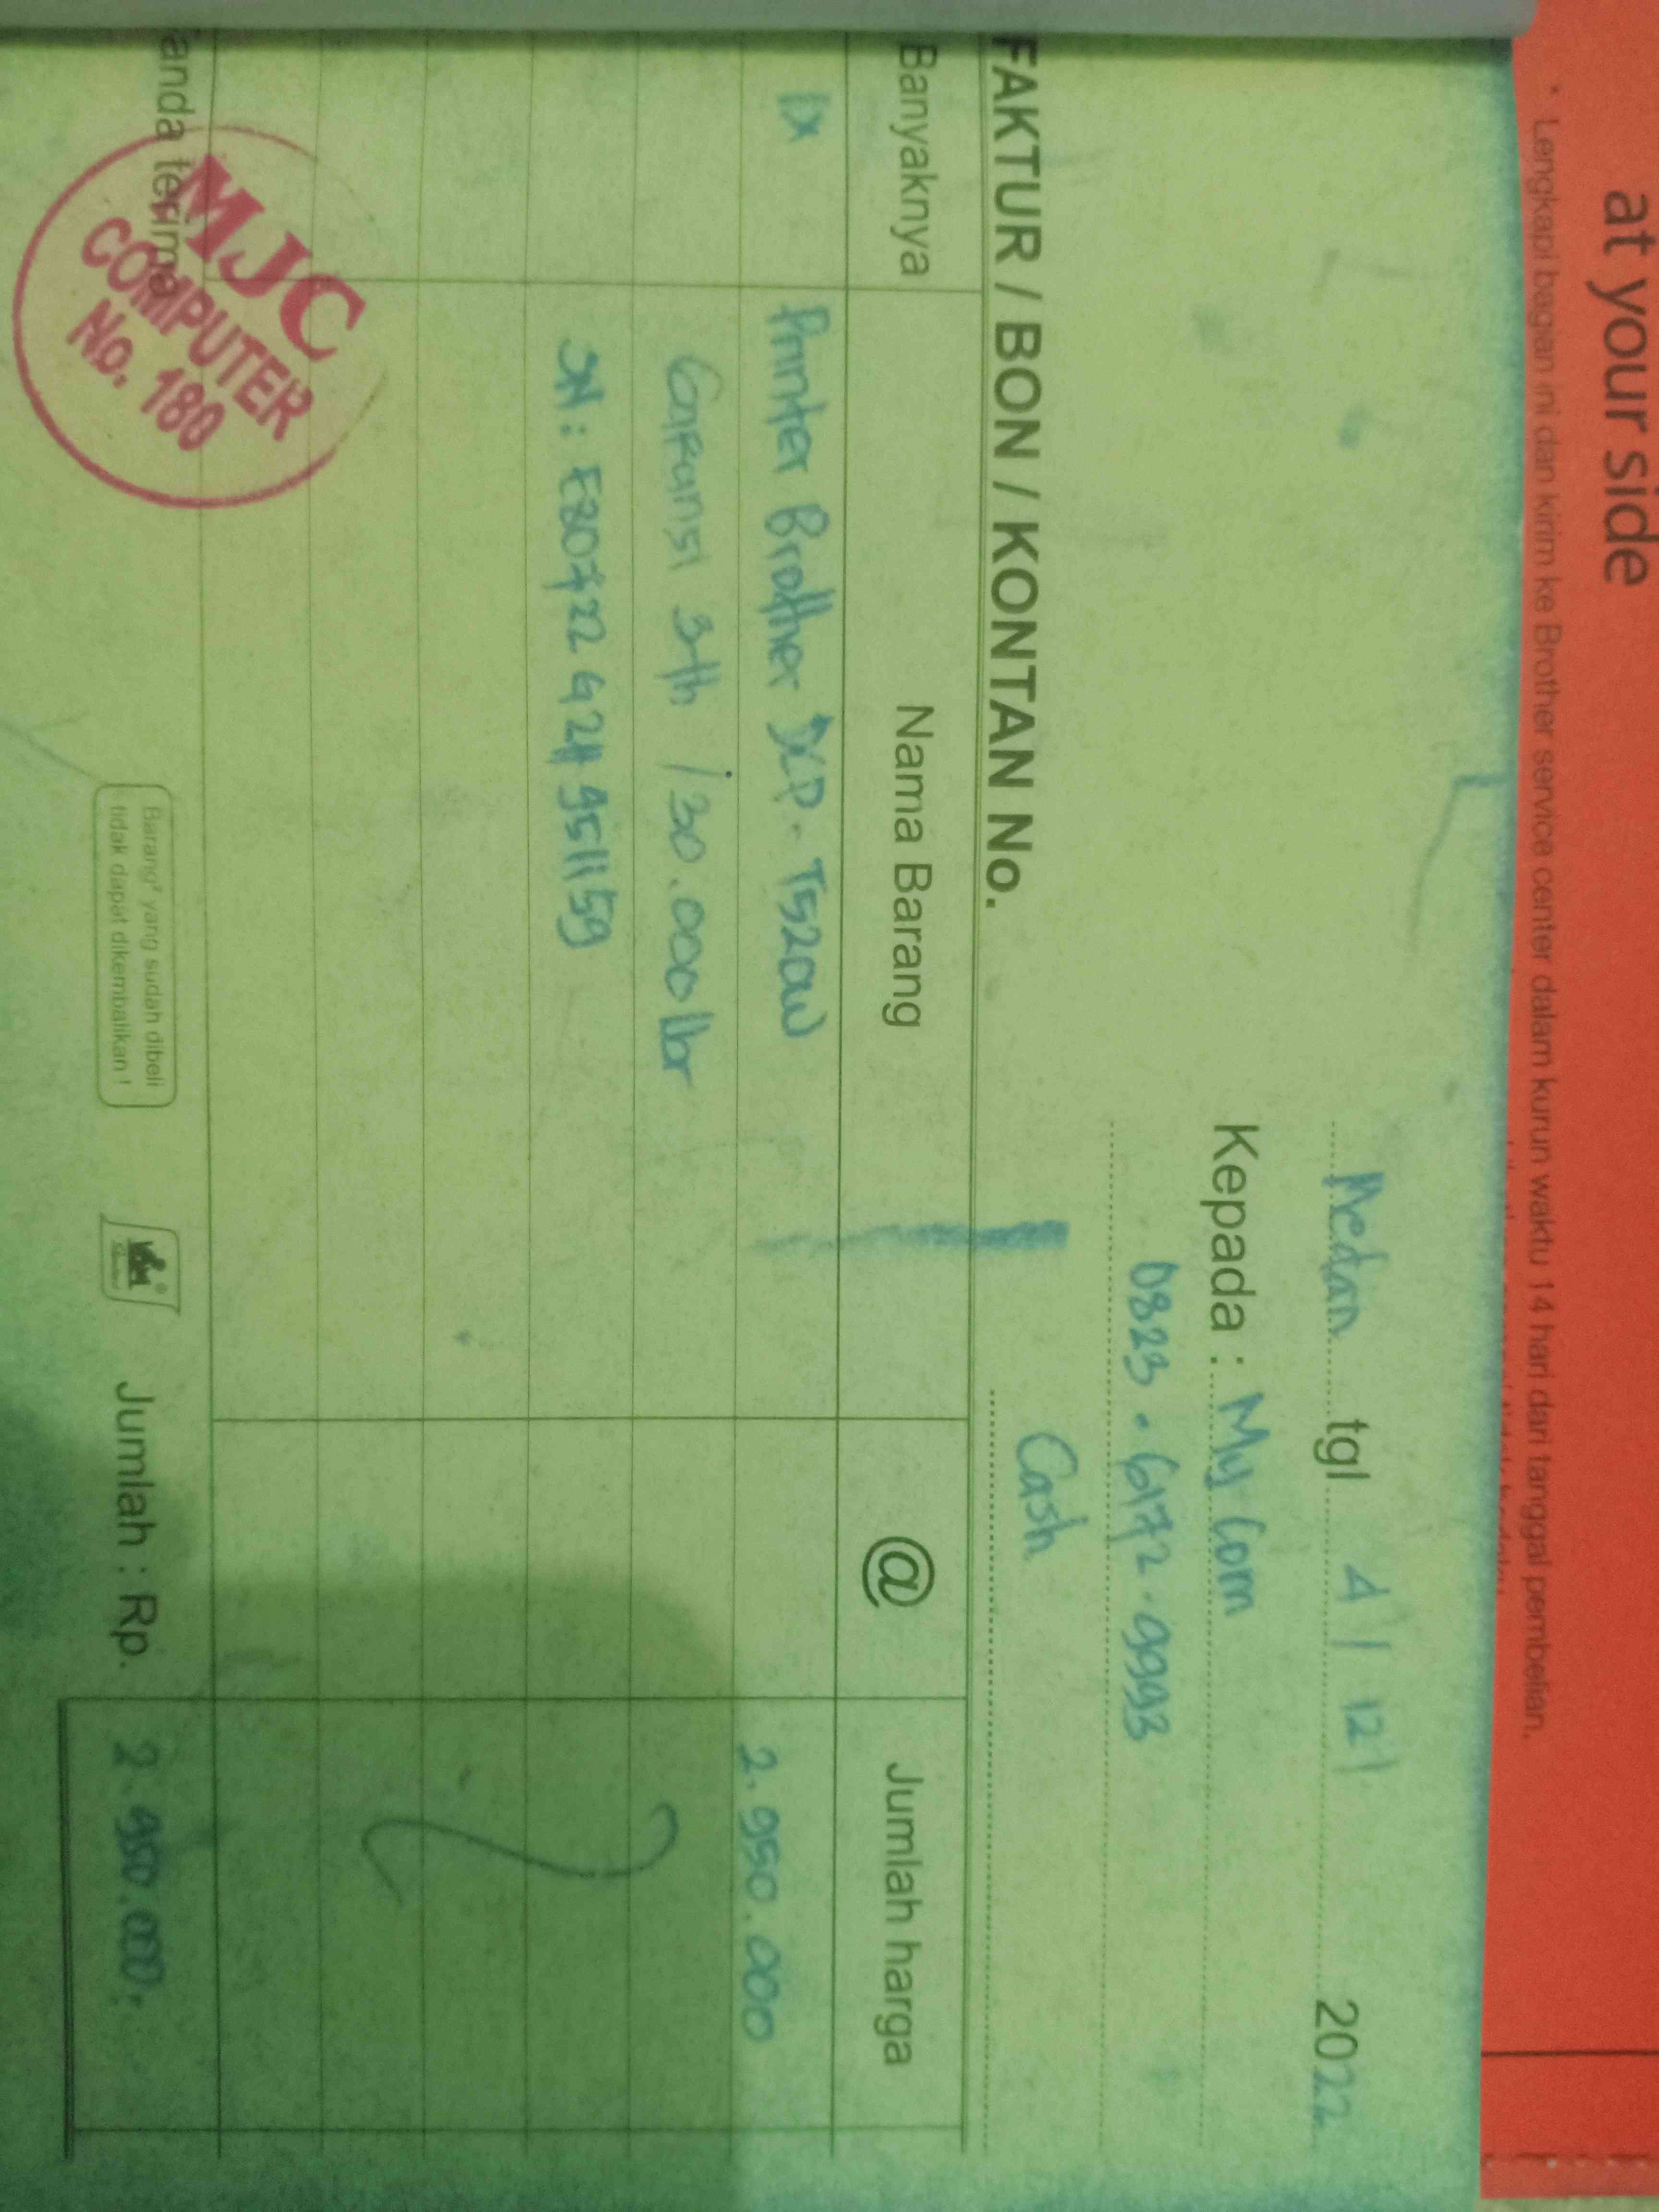 at your side
* Lengkapi bagian ini dan kirim ke Brother service center dalam kurun waktu 14 hari dari tanggal pembelian.
Medan tgl 4 / 12 / 2022
Kepada : My Com
0823 - 6172 - 9993
Cash
FAKTUR / BON / KONTAN No.
Banyaknya Nama Barang @ Jumlah harga
1x Printer Brother DCP - T520W 2.950.000
Garansi 3th / 30.000 lbr
SN : E80722 G2H 951159
anda terima
MJC
COMPUTER
No. 180
Barang² yang sudah dibeli
tidak dapat dikembalikan !
Jumlah : Rp. 2.950.000,-